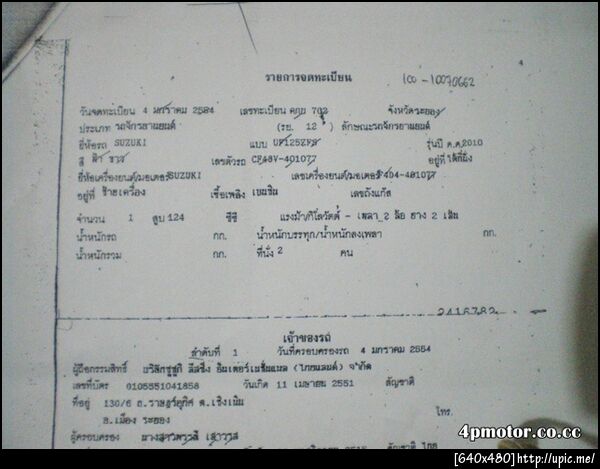 รายการจดทะเบียน 100-10070662
4
วันจดทะเบียน 4 มกราคม 2554 เลขทะเบียน คกย 702 จังหวัด ระยอง
ประเภท รถจักรยานยนต์ (รย. 12 ) ลักษณะ รถจักรยานยนต์
ยี่ห้อรถ SUZUKI แบบ รุ่นปี ค.ศ. 2010
สี ฟ้า ขาว เลขตัวรถ CF48V-401077 อยู่ที่ ใต้ที่นั่ง
ยี่ห้อเครื่องยนต์/มอเตอร์ SUZUKI เลขเครื่องยนต์/มอเตอร์ F4D4-401077
อยู่ที่ ซ้ายเครื่อง เชื้อเพลิง เบนซิน เลขถังแก๊ส
จำนวน 1 สูบ 124 ซีซี แรงม้า/กิโลวัตต์ - เพลา 2 ล้อ ยาง 2 เส้น
น้ำหนักรถ กก. น้ำหนักบรรทุก/น้ำหนักลงเพลา กก.
น้ำหนักรวม กก. ที่นั่ง 2 คน
2416782
เจ้าของรถ
ลำดับที่ 1 วันที่ครอบครองรถ 4 มกราคม 2554
ผู้ถือกรรมสิทธิ์ บริษัทซูซูกิ ลีสซิ่ง อินเตอร์เนชั่นแนล (ไทยแลนด์) จำกัด
เลขที่บัตร 0105551041858 วันเกิด 11 เมษายน 2551 สัญชาติ
ที่อยู่ 130/6 ถ.ราษฎร์อุทิศ ต.เชิงเนิน
อ.เมือง ระยอง โทร.
ผู้ครอบครอง นางสาวดาวดี เสาวรส
สัญชาติ ไทย
4pmotor.co.cc
[640x480]http://upic.me/